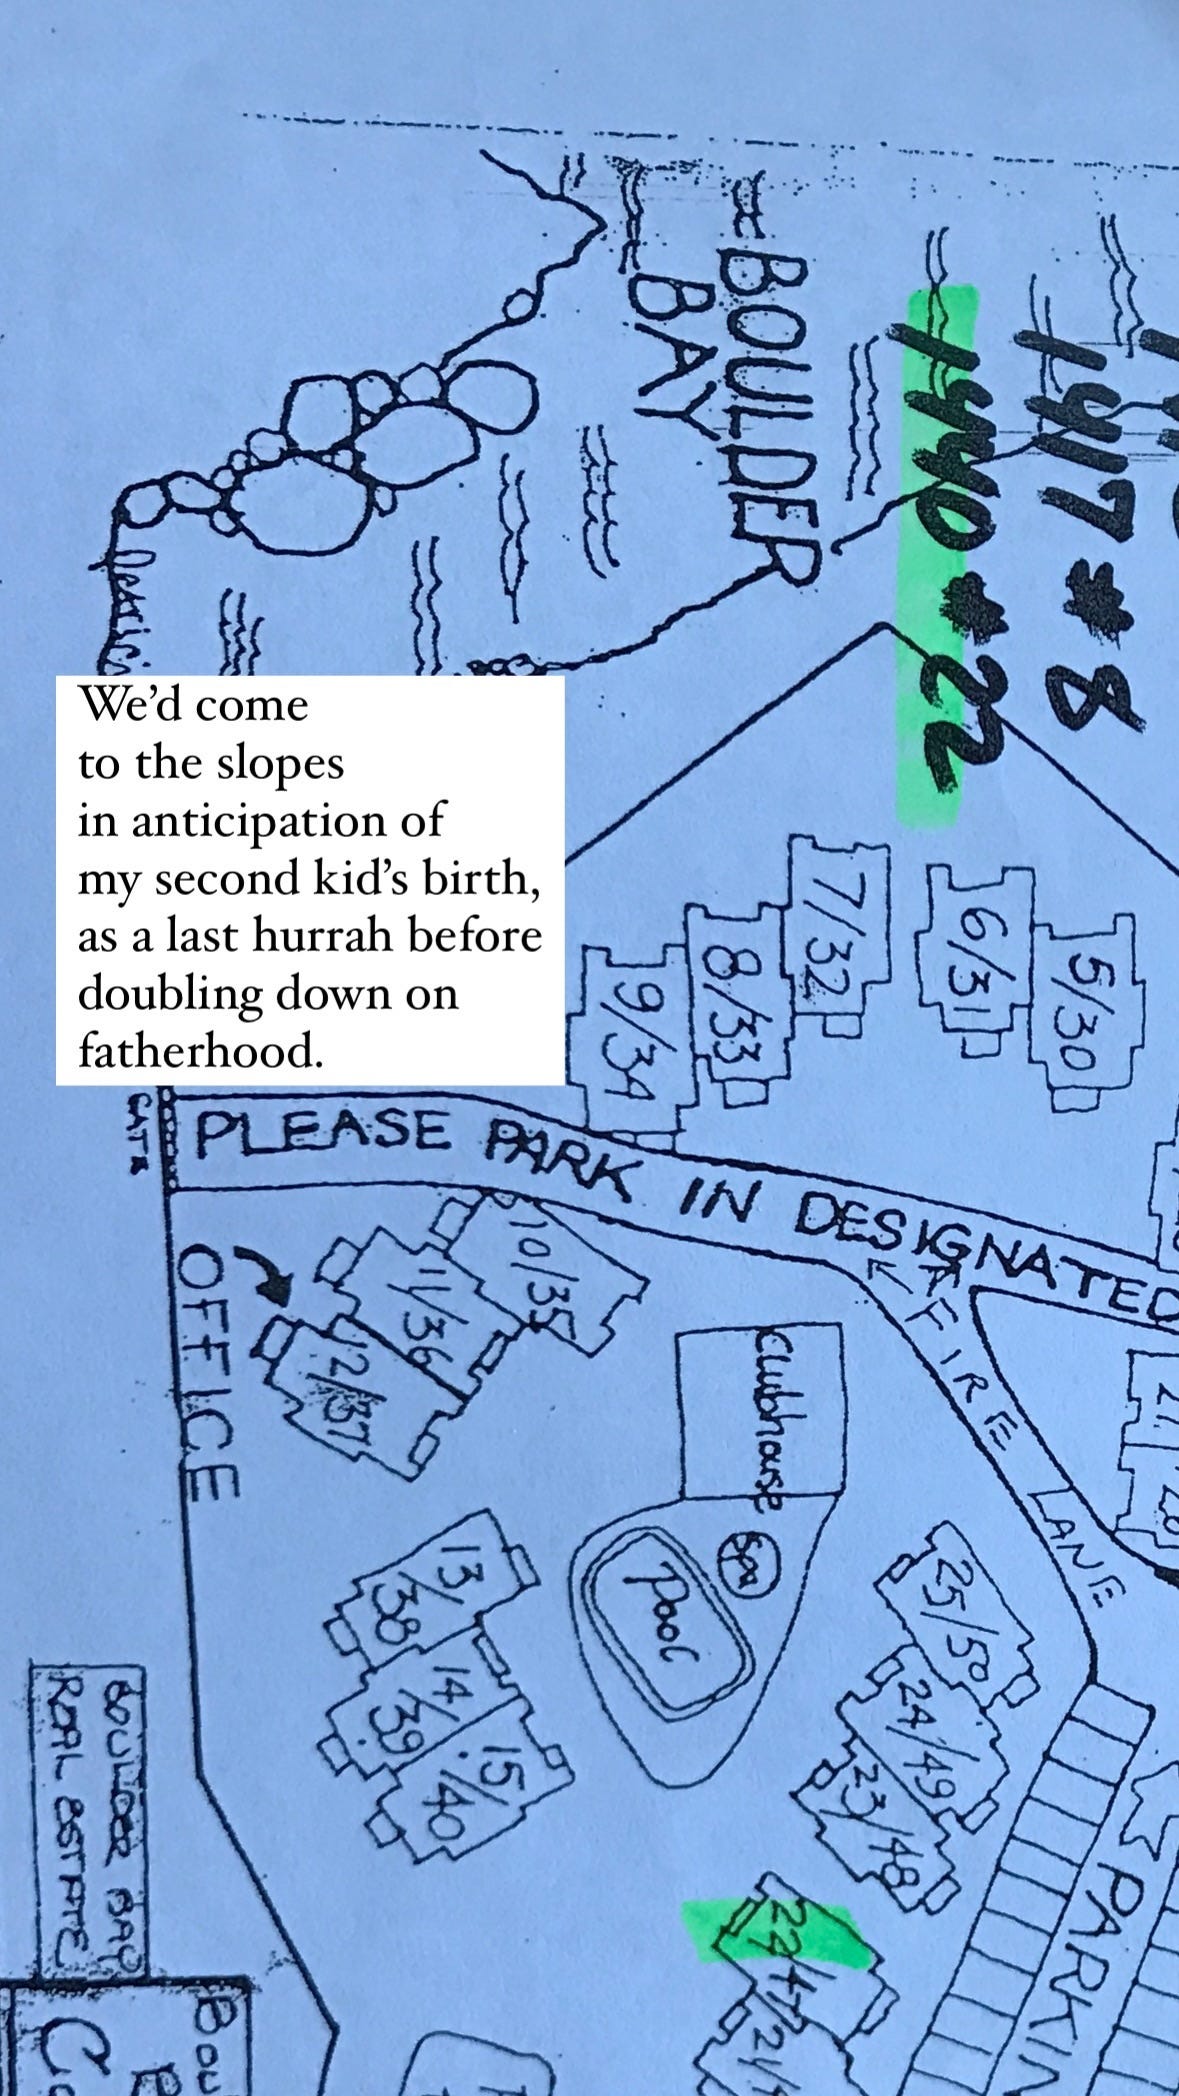 BOULDER
BAY
1440 #22
1417 #8
We'd come
to the slopes
in anticipation of
my second kid's birth,
as a last hurrah before
doubling down on
fatherhood.
7/32
6/31
5/30
8/33
9/34
GATE
PLEASE PARK IN DESIGNATED
FIRE LANE
OFFICE
10/35
11/36
12/37
Clubhouse
Spa
Pool
13/38
14/39
15/40
25/50
24/49
23/48
22/47
PARKIN
BOULDER BAY
REAL ESTATE
BOU